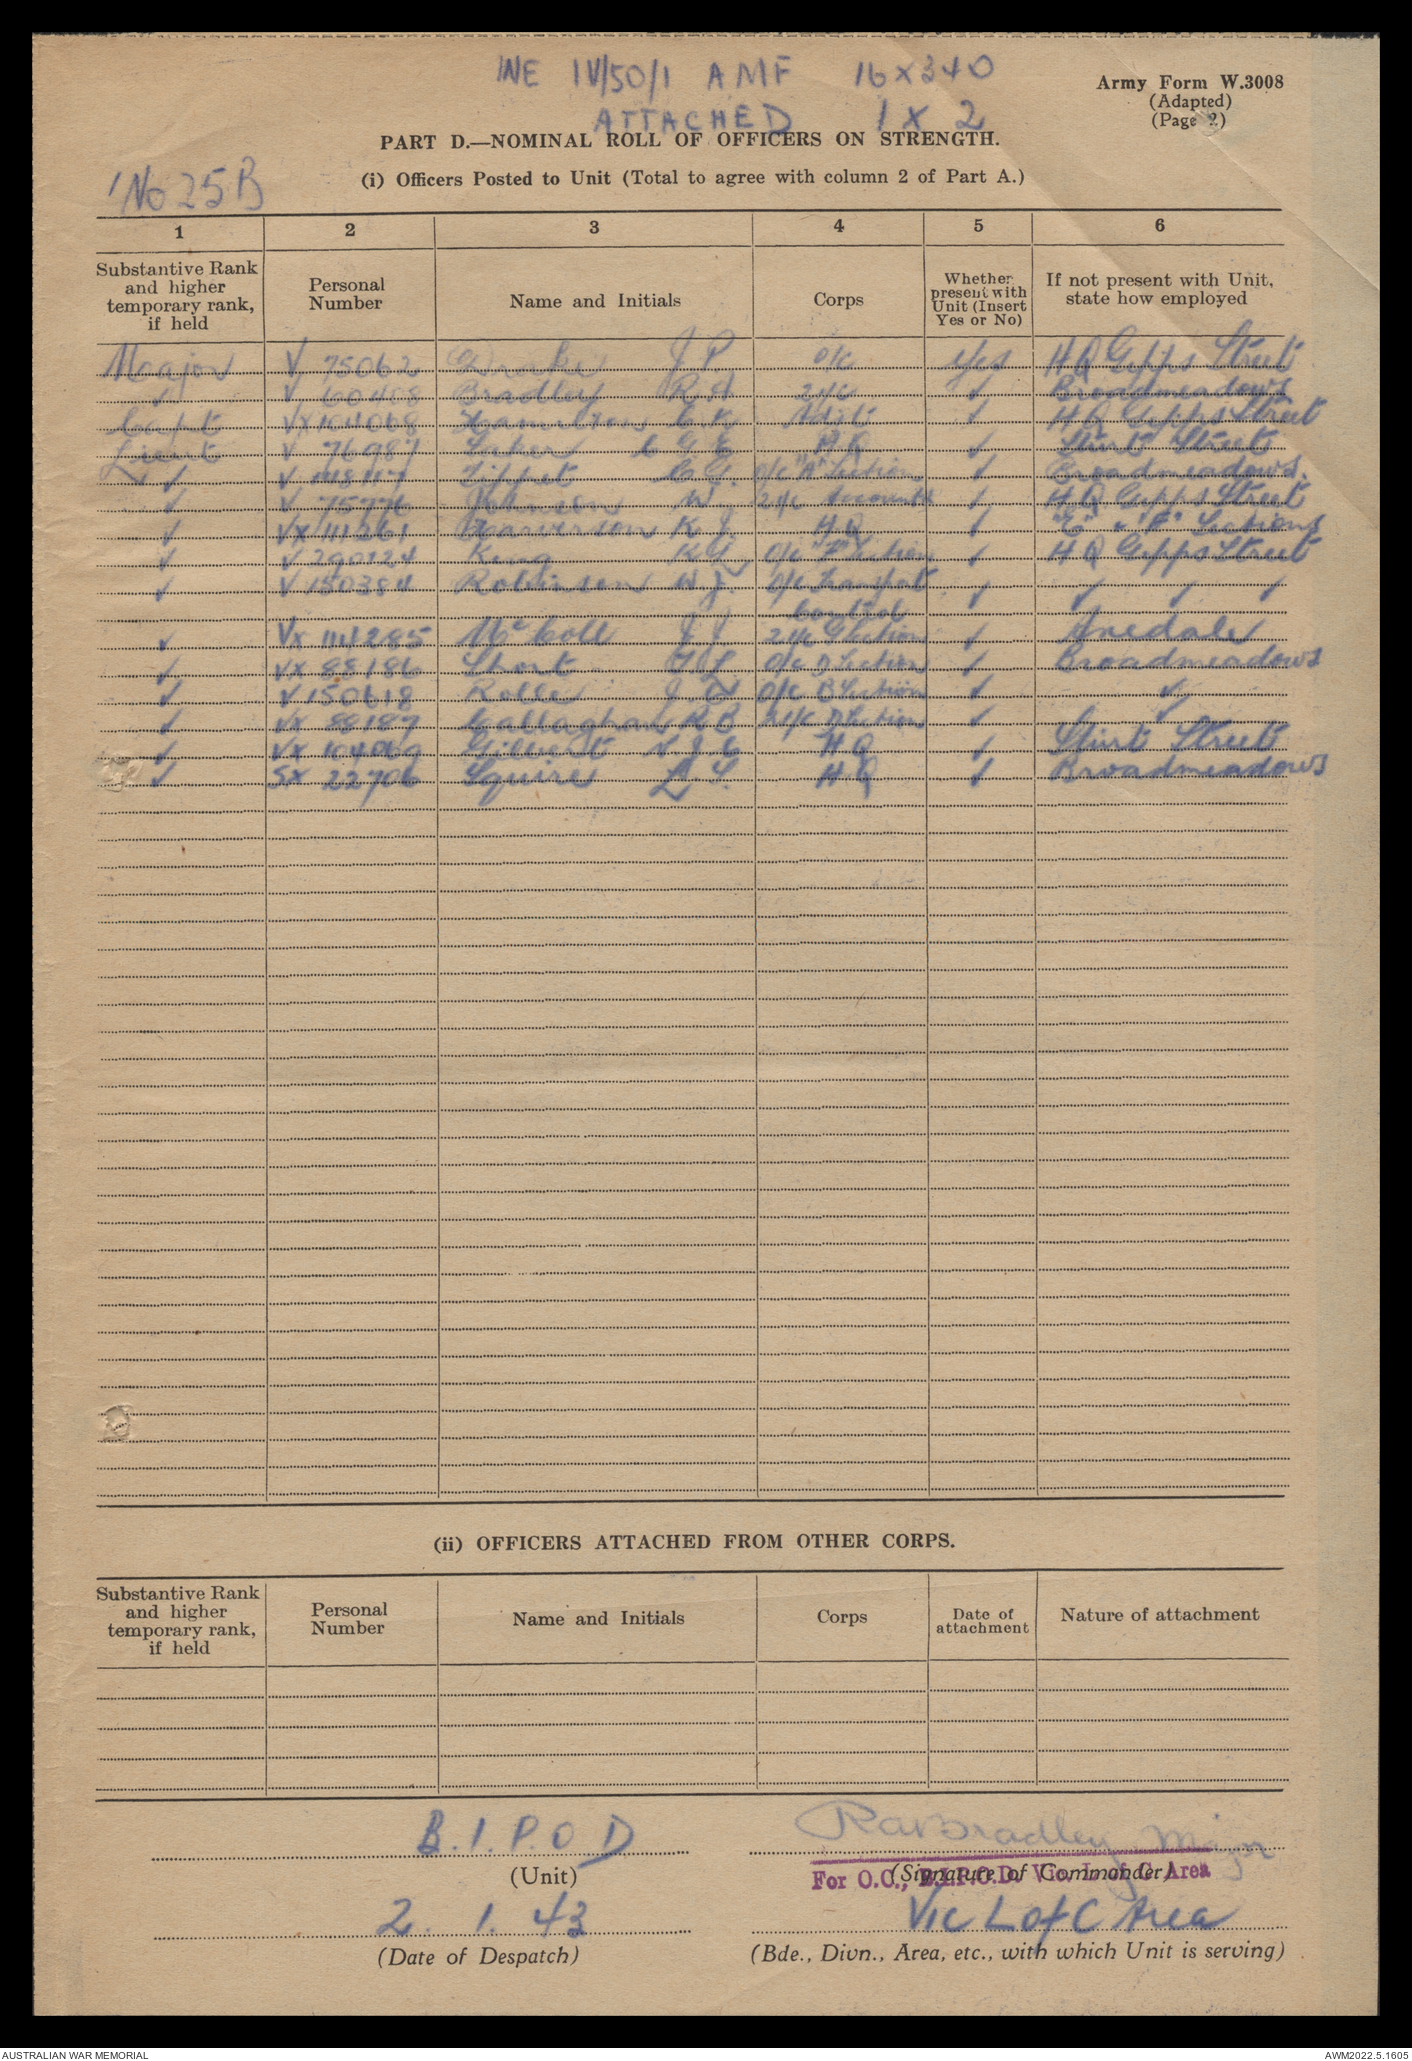 WE IV/50/1 AMF 16 x 340
ATTACHED 1 x 2
Army Form W.3008
(Adapted)
(Page 2)
PART D.—NOMINAL ROLL OF OFFICERS ON STRENGTH.
(i) Officers Posted to Unit (Total to agree with column 2 of Part A.)
No 25B
1 2 3 4 5 6
Substantive Rank and higher temporary rank, if held Personal Number Name and Initials Corps Whether present with Unit (Insert Yes or No) If not present with Unit, state how employed
Major V 75062 Drake J.P. O/C Yes H.Q Gipps Street
✓ V 60418 Bradley R A 2 I/C ✓ Broadmeadows
Capt VX104068 Hamilton C.K. Adjt ✓ H Q Gipps Street
Lieut V 76987 C G E H.Q ✓ Sturt Street
✓ Tippet C.G. O/C "A" Section ✓ Broadmeadows.
✓ V 75776 Johnson W. 2 I/C Accounts ✓ H.Q Gipps Street
✓ VX 111261 K J. H.Q ✓ "E" & "F" Sections
✓ V 290124 King K G O/C Section ✓ H Q Gipps Street
✓ V 150384 Robinson W.J. O/C Transport ✓ ✓ ✓ ✓
Control
✓ VX 114285 McColl J J 2 I/C Section ✓
✓ VX 88186 Short O/C D Section ✓ Broadmeadows
✓ V 150618 O/C B Section ✓ ✓
✓ VX 88189 Callaghan R B 2 I/C D Section ✓
✓ VX 104060 Gilbert H Q ✓ Sturt Street
✓ SX 22706 Squire L. H.Q ✓ Broadmeadows
(ii) OFFICERS ATTACHED FROM OTHER CORPS.
Substantive Rank and higher temporary rank, if held Personal Number Name and Initials Corps Date of attachment Nature of attachment
B.I.P.O D RA Bradley Major
(Unit) (Signature of Commander)
For O.C., B.I.P.O.D. Vic. L. of C. Area
2. 1. 43 Vic L of C Area
(Date of Despatch) (Bde., Divn., Area, etc., with which Unit is serving)
AUSTRALIAN WAR MEMORIAL AWM2022.5.1605